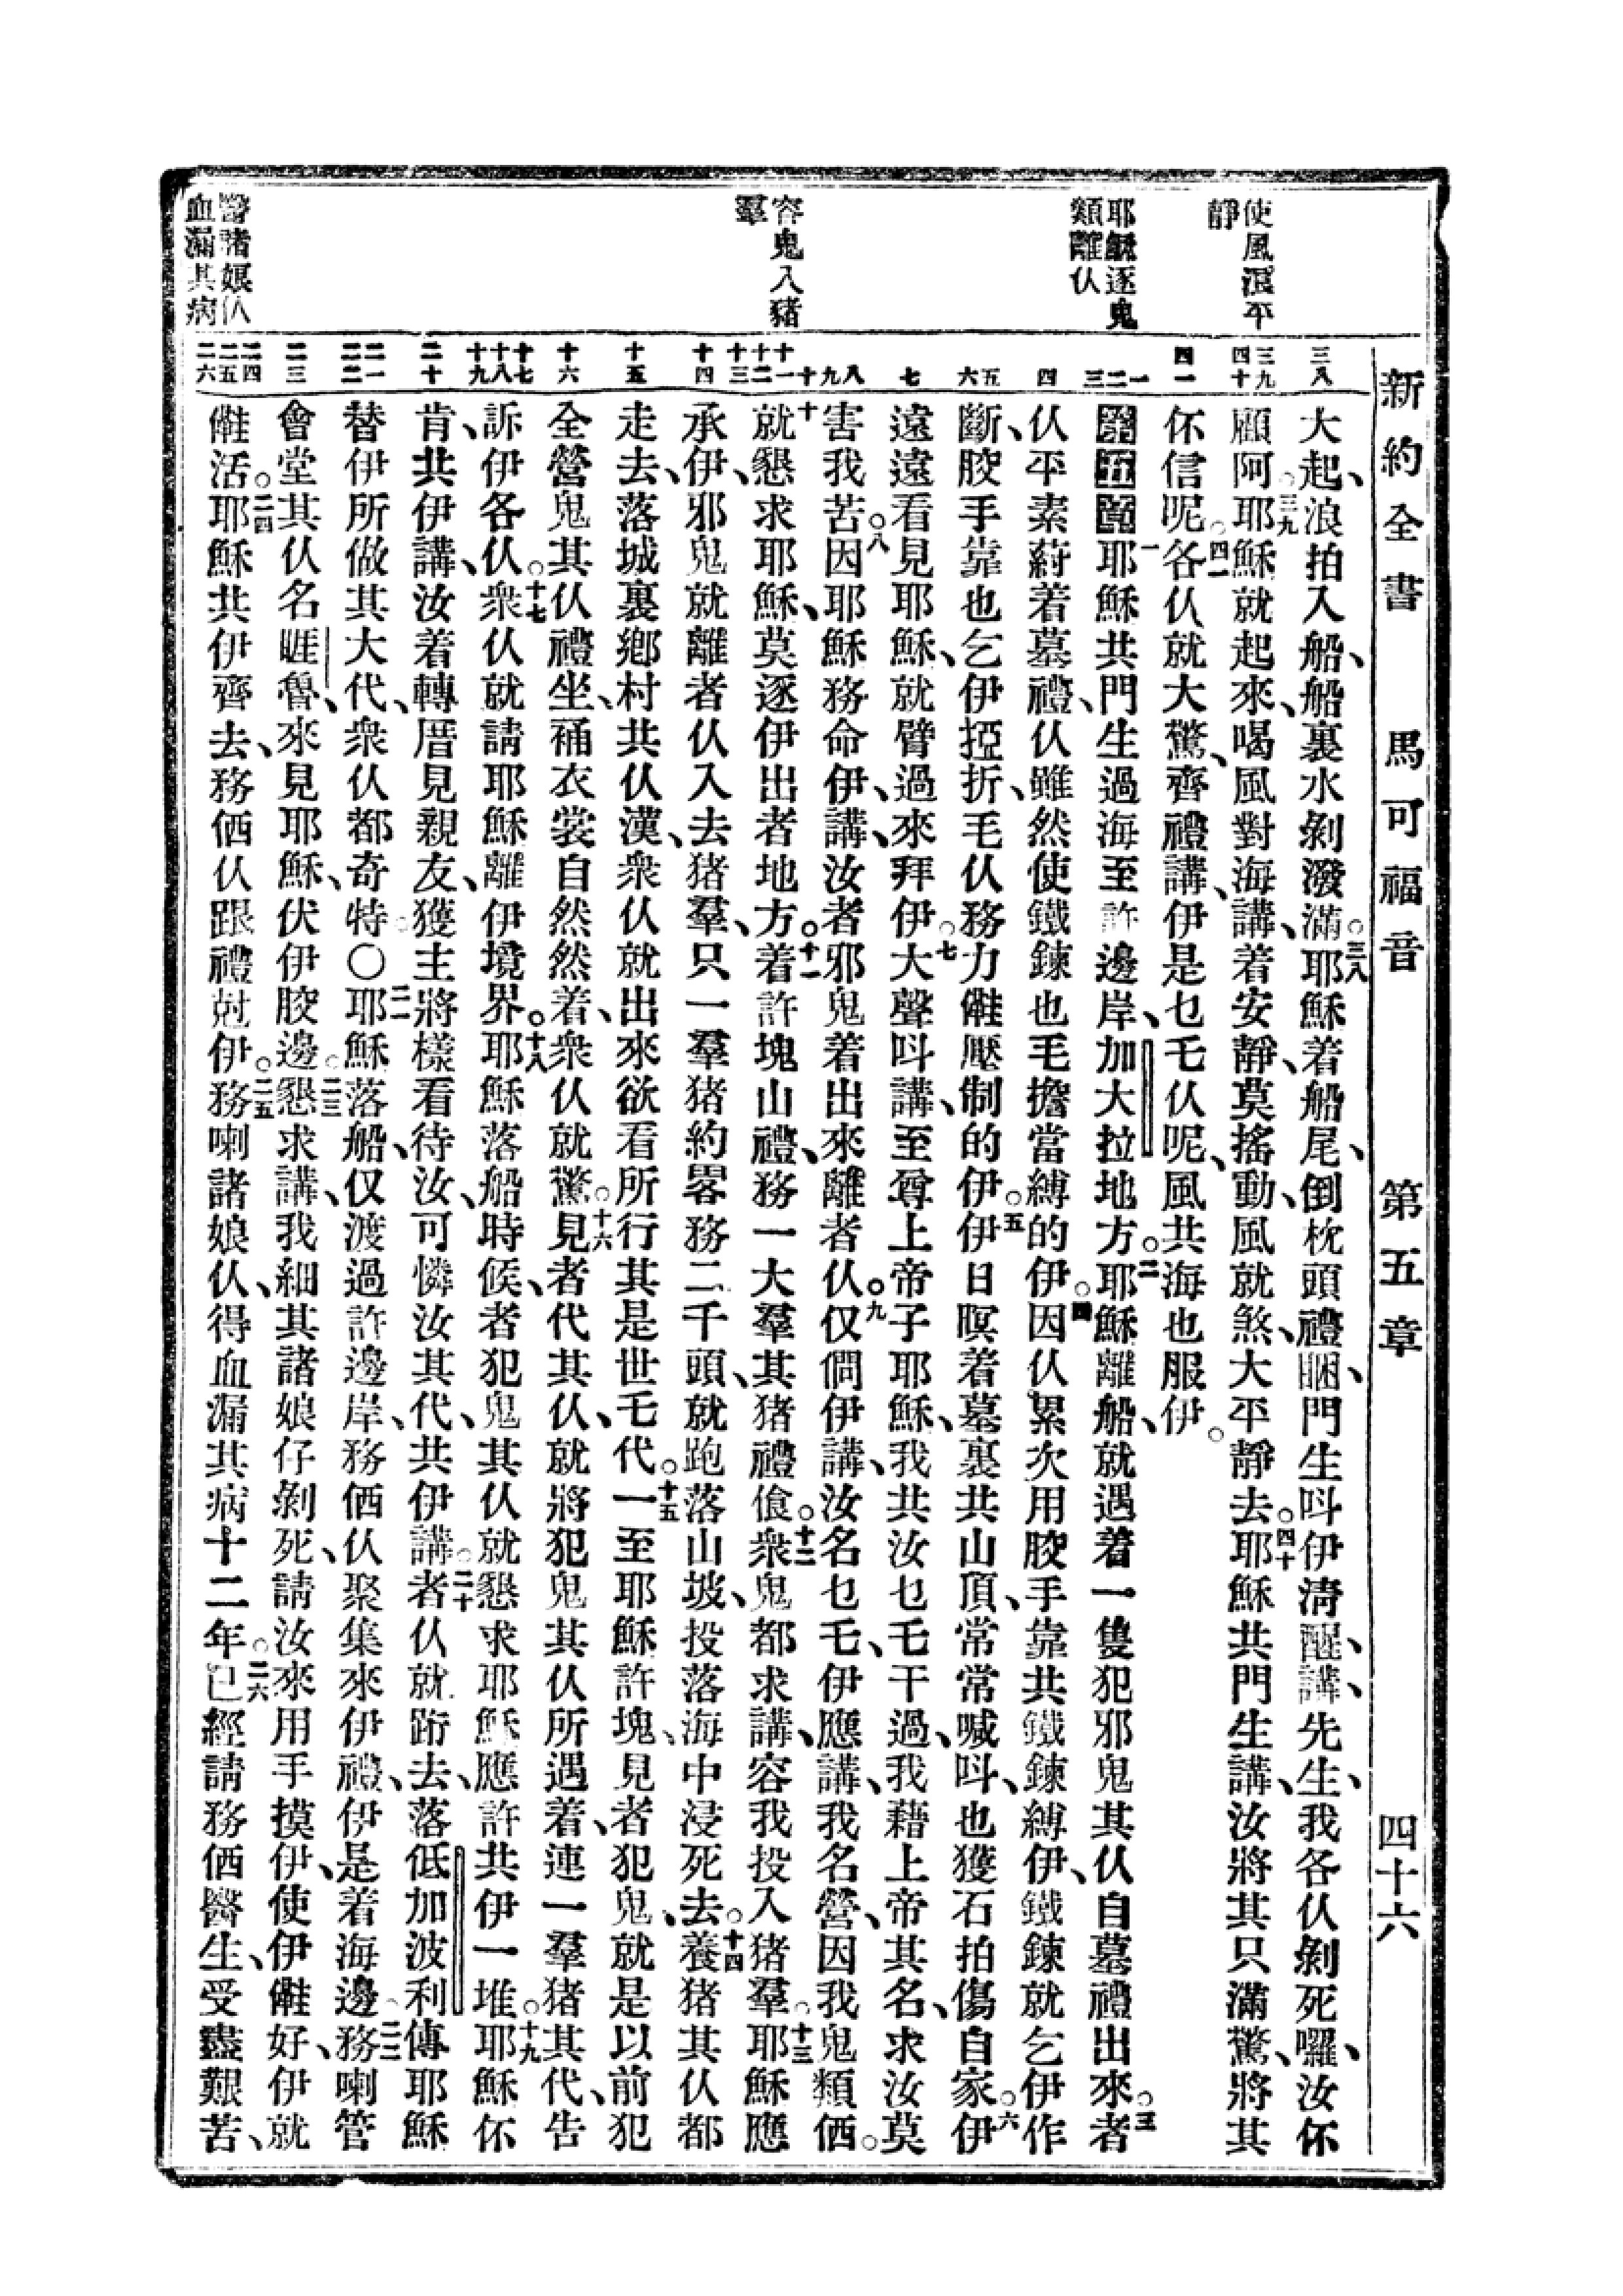 新約全書　馬可福音　第五章　四十六
使風浪平
靜
耶穌逐鬼
類離仈
容鬼入猪
羣
醫諸娘仈
血漏其病
三八
三九
四十
四一
一
二
三
四
五
六
七
八
九
十
十一
十二
十三
十四
十五
十六
十七
十八
十九
二十
二一
二二
二三
二四
二五
二六
大起、浪拍入船、船裏水剝潑滿。三八耶穌着船尾、倒枕頭禮睏、門生呌伊淸醒、講、先生、我各仈剝死囉、汝伓
顧阿。三九耶穌就起來、喝風對海講、着安靜、莫搖動、風就煞、大平靜去。四十耶穌共門生講、汝將其只滿驚、將其
伓信呢。四一各仈就大驚、齊禮講、伊是乜乇仈呢、風共海也服伊。
第五章一耶穌共門生過海至許邊岸、加大拉地方。二耶穌離船、就遇着一隻犯邪鬼其仈自墓禮出來。三者
仈平素蒔着墓禮、仈雖然使鐵鍊也毛擔當縛的伊。四因仈累次用骹手靠共鐵鍊縛伊、鐵鍊就乞伊作
斷、骹手靠也乞伊掗折、毛仈務力㑸壓制的伊。五伊日暝着墓裏共山頂、常常喊呌、也獲石拍傷自家。六伊
遠遠看見耶穌、就臂過來拜伊。七大聲呌講、至尊上帝子耶穌、我共汝乜乇干過、我藉上帝其名、求汝莫
害我苦。八因耶穌務命伊、講、汝者邪鬼着出來離者仈。九仅僩伊講、汝名乜乇、伊應講、我名營、因我鬼類価。
十就懇求耶穌、莫逐伊出者地方。十一着許塊山禮、務一大羣其猪禮飡。十二衆鬼都求講、容我投入猪羣。十三耶穌應
承伊、邪鬼就離者仈入去猪羣、只一羣猪約畧務二千頭、就跑落山坡、投落海中浸死去。十四養猪其仈都
走去、落城裏鄕村共仈漢、衆仈就出來欲看所行其是世乇代。十五一至耶穌許塊、見者犯鬼、就是以前犯
全營鬼其仈禮坐、䘄衣裳自然然着、衆仈就驚。十六見者代其仈、就將犯鬼其仈所遇着、連一羣猪其代、告
訴伊各仈。十七衆仈就請耶穌離伊境界。十八耶穌落船時候、者犯鬼其仈就懇求耶穌應許共伊一堆。十九耶穌伓
肯、共伊講、汝着轉厝見親友、獲主將樣看待汝、可憐汝其代、共伊講。二十者仈就跔去、落低加波利傳耶穌
替伊所做其大代、衆仈都奇特。〇二一耶穌落船、仅渡過許邊岸、務価仈聚集來伊禮、伊是着海邊。二二務喇管
會堂其仈名睚魯、來見耶穌、伏伊骹邊。二三懇求講、我細其諸娘仔剝死、請汝來用手摸伊、使伊㑸好、伊就
㑸活。二四耶穌共伊齊去、務価仈跟禮尅伊。二五務喇諸娘仈、得血漏其病十二年。二六已經請務価醫生、受盡艱苦、